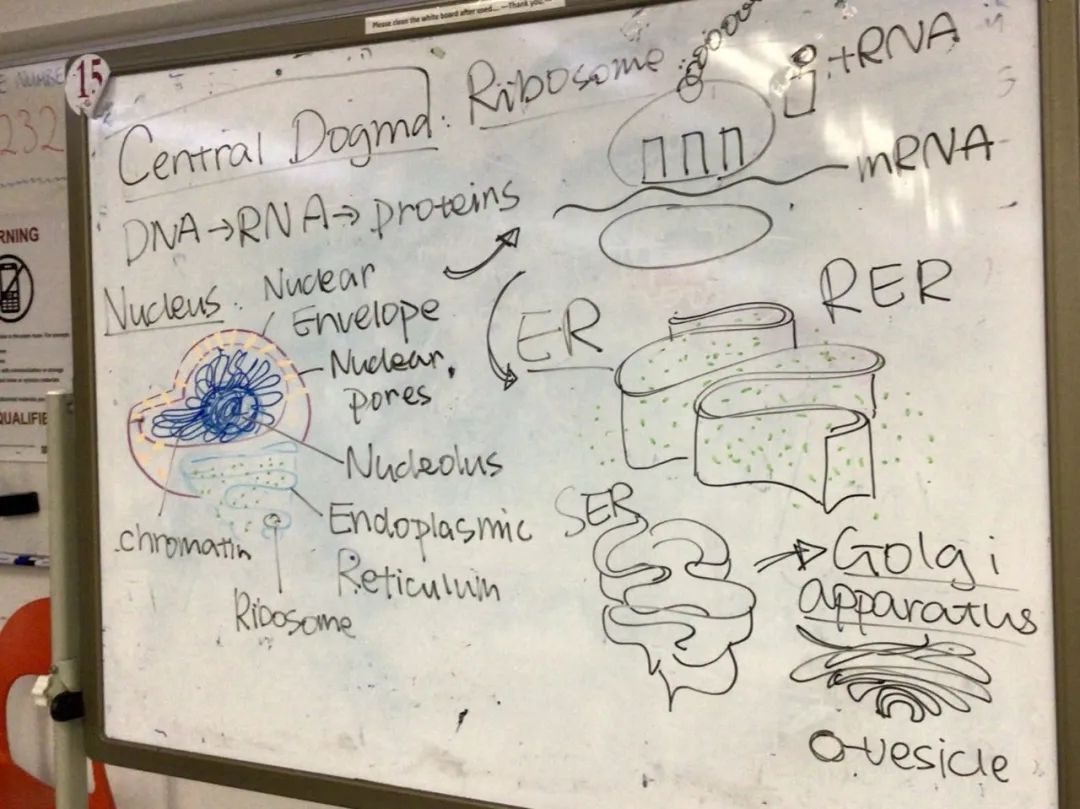 Please clean the white board after used... ---Thank you
15
232
RNING
QUALIFIE
Central Dogma:
DNA→RNA→proteins
Nucleus:
Nuclear
Envelope
Nuclear
pores
Nucleolus
Endoplasmic
Reticulum
chromatin
Ribosome
Ribosome
tRNA
mRNA
ER
RER
SER
Golgi
apparatus
vesicle